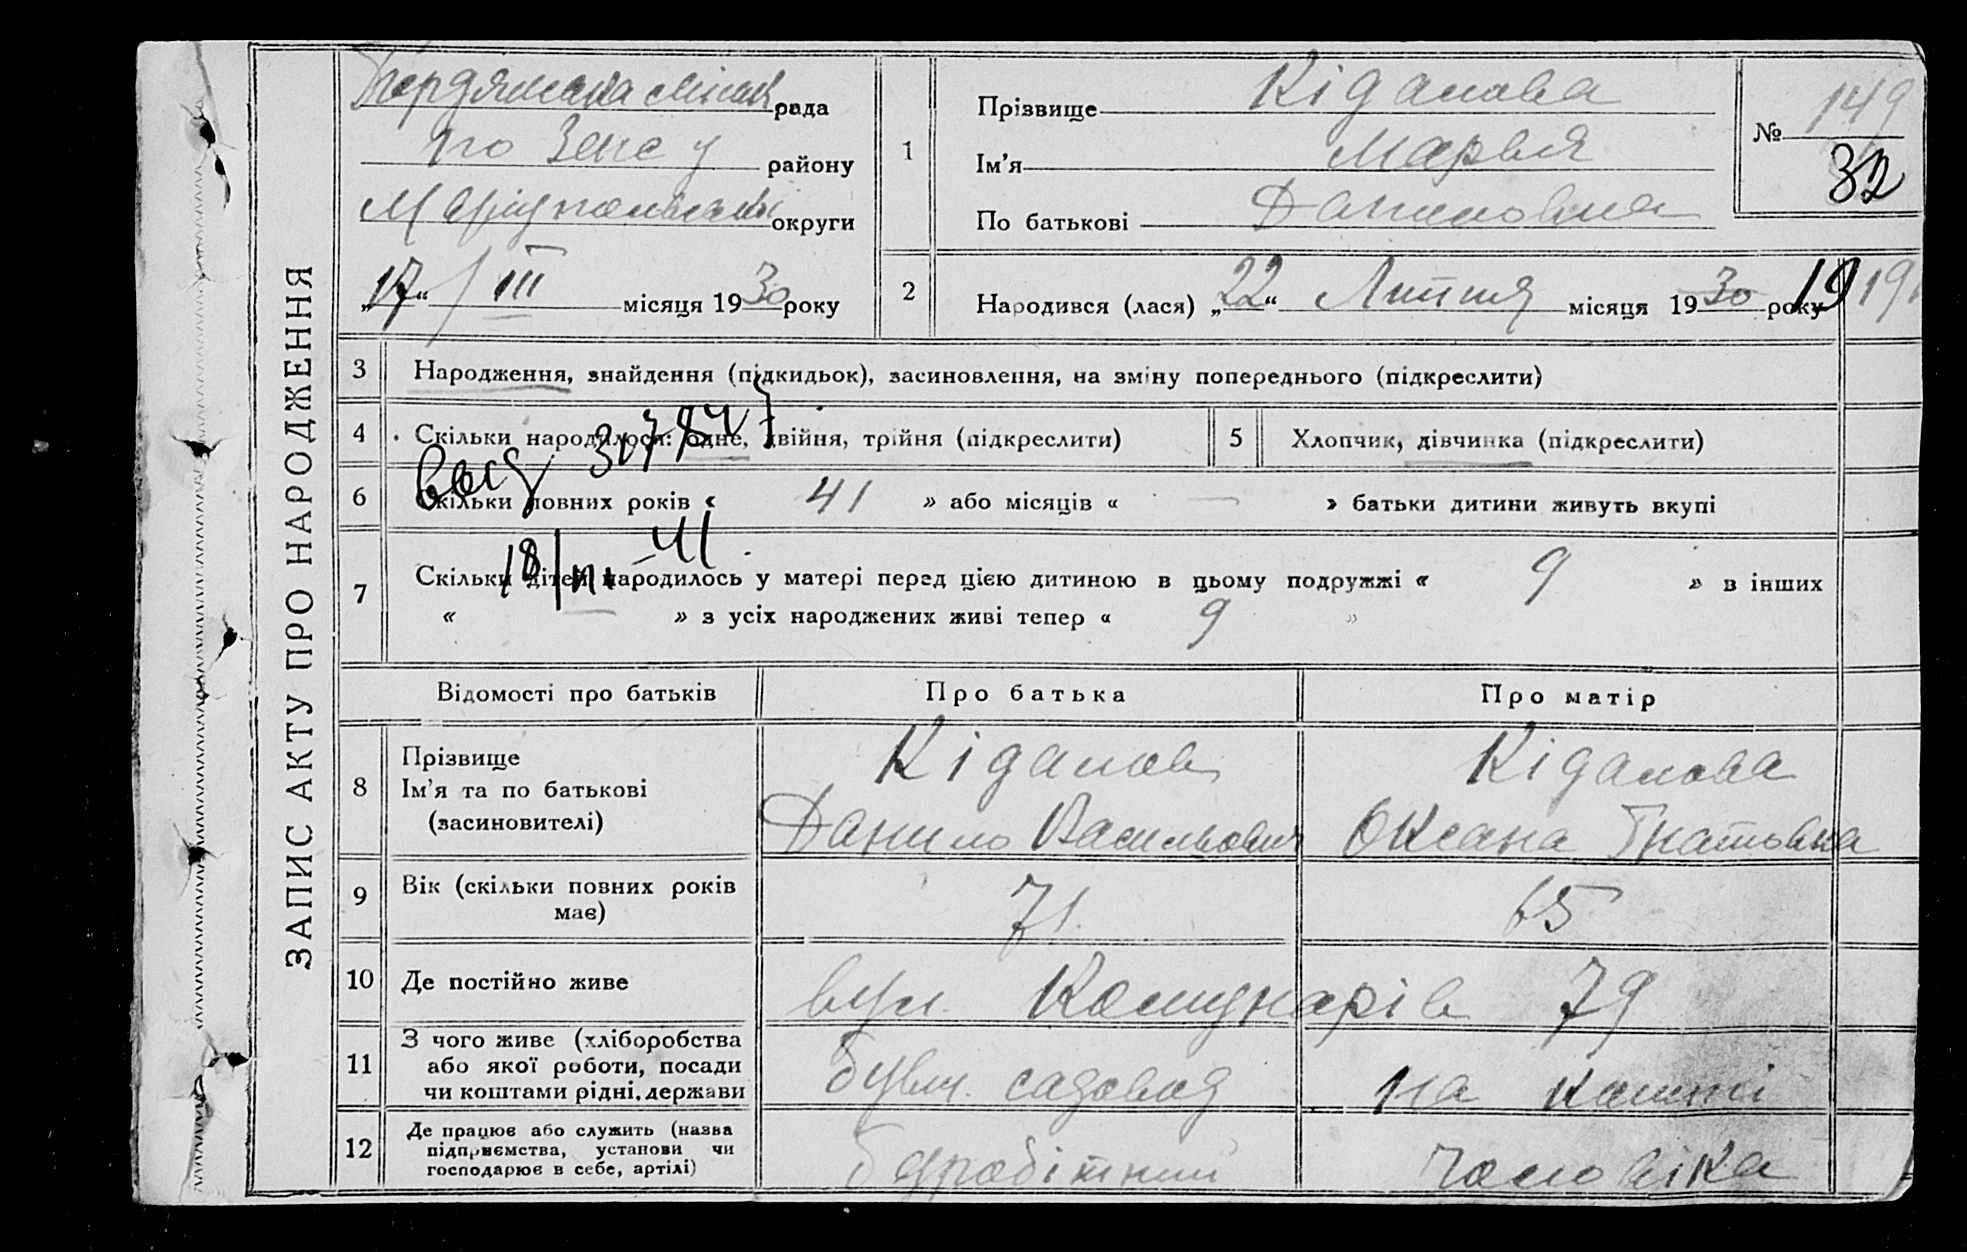 ЗАПИС АКТУ ПРО НАРОДЖЕННЯ
Бердянська міська рада
по Загс у району
Маріупольської округи
„17“ / III місяця 1930 року
1
Прізвище Кіданова
Ім'я Марья
По батькові Даниловна
№ 149
32
2
Народився (лася) „22“ Липня місяця 1930 року 19 191
3 Народження, знайдення (підкидьок), засиновлення, на зміну попереднього (підкреслити)
4 Скільки народилося: одне, двійня, трійня (підкреслити)
5 Хлопчик, дівчинка (підкреслити)
6 Скільки повних років « 41 » або місяців « — » батьки дитини живуть вкупі
18/III-41
7 Скільки дітей народилось у матері перед цією дитиною в цьому подружжі « 9 » в інших
« — » з усіх народжених живі тепер « 9 »
Відомості про батьків Про батька Про матір
8 Прізвище
Ім'я та по батькові
(засиновителі)
Кіданов
Данило Васильович
Кіданова
Оксана Гнатовна
9 Вік (скільки повних років
має)
71
65
10 Де постійно живе вул. Комунарів 79
11 З чого живе (хліборобства
або якої роботи, посади
чи коштами рідні, держави
садовод
на кошті
12 Де працює або служить (назва
підприємства, установи чи
господарює в себе, артілі)
безробітний
чоловіка